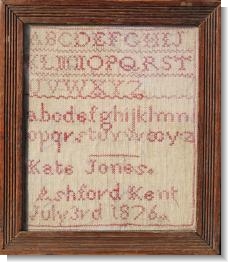 ABCDEFGHIJ
KLMNOPQRST
UVWXYZ
abcdefghijklmn
opqrstuvwxyz
Kate Jones.
Ashford Kent
July 3rd 1876